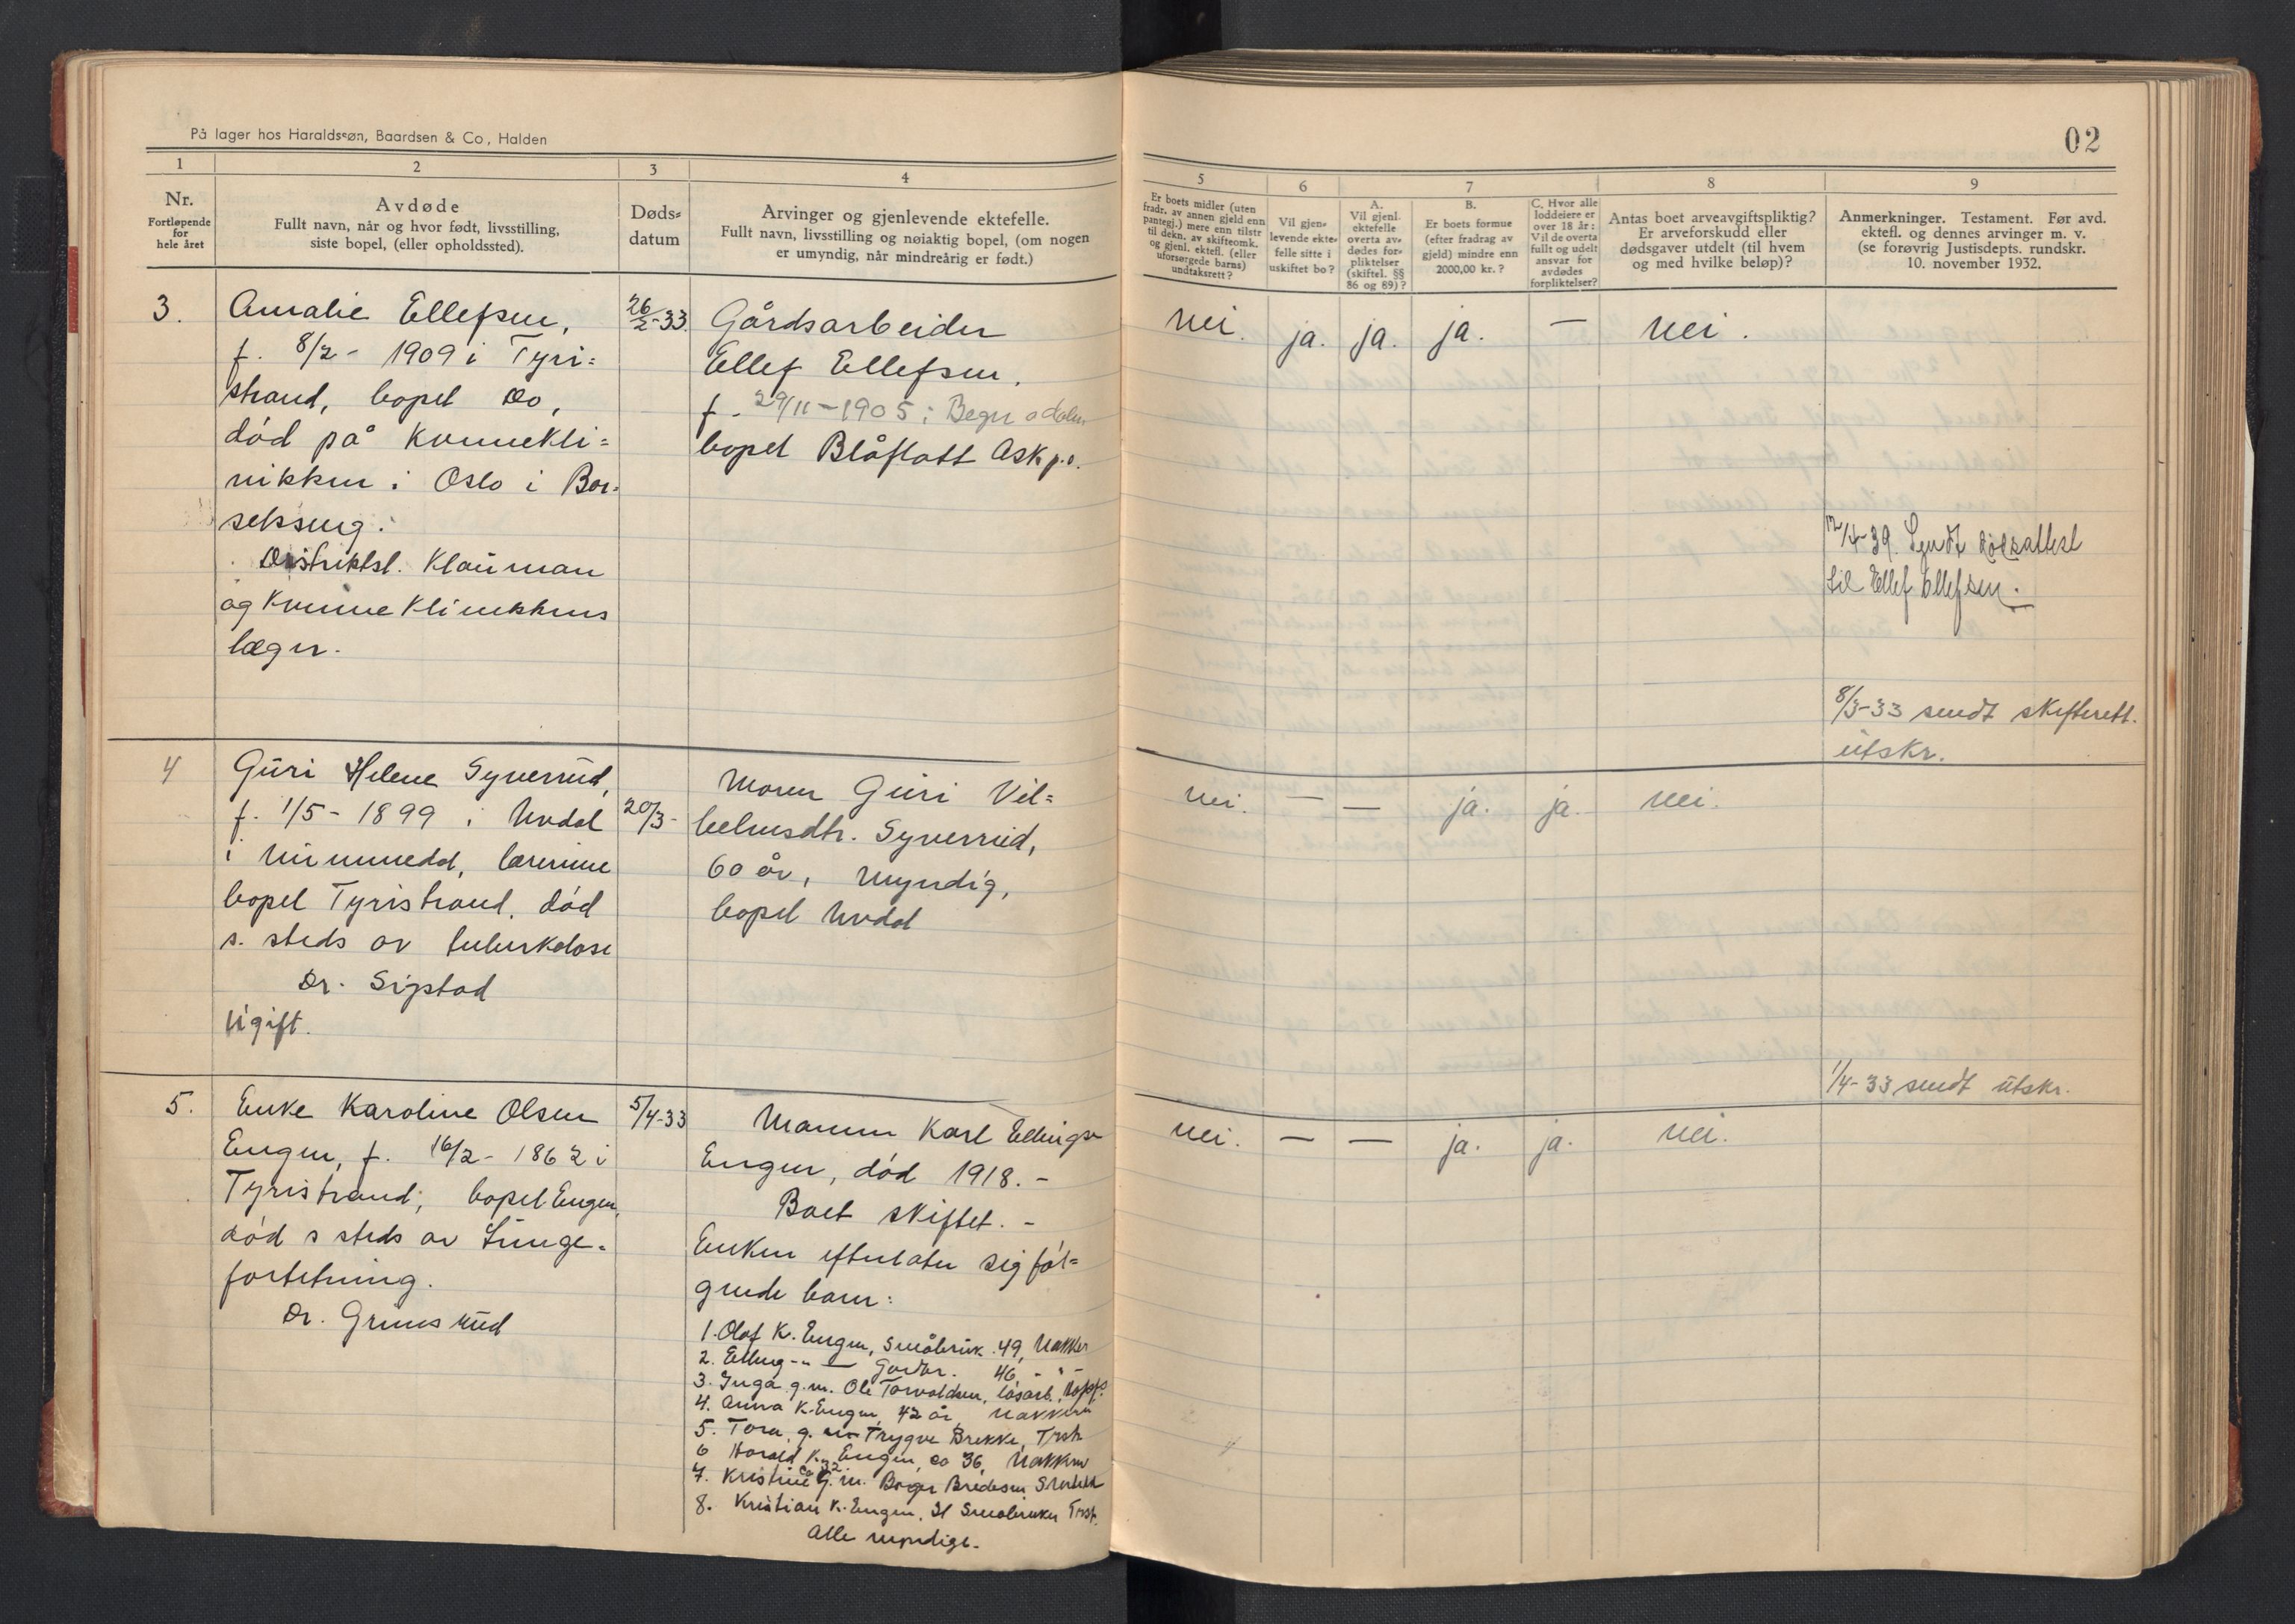 På lager hos Haraldssøn, Baardsen & Co, Halden
02
1
2
3
4
5
6
7
8
9
Nr.
Fortløpende
for
hele året
Avdøde
Fullt navn, når og hvor født, livsstilling,
siste bopel, (eller opholdssted).
Døds-
datum
Arvinger og gjenlevende ektefelle.
Fullt navn, livsstilling og nøiaktig bopel, (om nogen
er umyndig, når mindreårig er født.)
Er boets midler (uten
fradr. av annen gjeld enn
pantegj.) mere enn tilstr
til dekn. av skifteomk.
og gjenl. ektefl. (eller
uforsørgede barns)
undtaksrett?
Vil gjen-
levende ekte-
felle sitte i
uskiftet bo?
A.
Vil gjenl.
ektefelle
overta av-
dødes for-
pliktelser
(skiftel. §§
86 og 89)?
B.
Er boets formue
(efter fradrag av
gjeld) mindre enn
2000,00 kr.?
C. Hvor alle
loddeiere er
over 18 år:
Vil de overta
fullt og udelt
ansvar for
avdødes
forpliktelser?
Antas boet arveavgiftspliktig?
Er arveforskudd eller
dødsgaver utdelt (til hvem
og med hvilke beløp)?
Anmerkninger. Testament. Før avd.
ektefl. og dennes arvinger m. v.
(se forøvrig Justisdepts. rundskr.
10. november 1932.
3.
Amalie Ellefsen,
f. 8/2 - 1909 i Tyri=
strand, bopel do,
død på Kvinnekli=
nikken i Oslo i Bar=
selsseng.
Distriktsl. Klauman
og Kvinneklinikkens
læger.
26/2-33.
Gårdsarbeider
Ellef Ellefsen,
f. 29/11-1905 i Begnadalen
bopel Blåflatt Ask p.o.
nei. ja. ja. ja. — nei.
12/4-39. Sendt
til Ellef Ellefsen.
8/3-33 sendt skifterett.
utskr.
4
Guri Helene Syverrud,
f. 1/5 - 1899 i Uvdal
i Nummedal, lærerinne
bopel Tyristrand, død
s. steds av tuberkolose
Dr. Sigstad
Ugift.
20/3-
Moren Guri Vil=
helmsdtr. Syverrud,
60 år, myndig,
bopel Uvdal
nei. — — ja. ja. nei.
1/4-33 sendt utskr.
5.
Enke Karoline Olsen
Engen, f. 16/2 - 1862 i
Tyristrand, bopel Engen,
død s steds av Lunge-
fortetning.
Dr. Grimsrud
5/4-33
Mannen Karl Ellingsen
Engen, død 1918. -
Boet skiftet. -
Enken efterlater sig føl=
gende barn:
1. Olaf K. Engen, Småbruk. 49, Nakken
2. Elling -"- — Gårdbr. 46, - " -
3. Inga g.m. Ole Torvaldsen, løsarb.
4. Anna K. Engen, 42 år, Nakken
5. Tora, g. m Trygve Brekke, Trstr
6 Harald K. Engen, ca 36, Nakken
7. Kristine ca 32 g.m. Birger Bredesen
8. Kristian K. Engen, 31 Småbruker Trstr.
Alle myndige.
nei. — — ja. ja. nei.